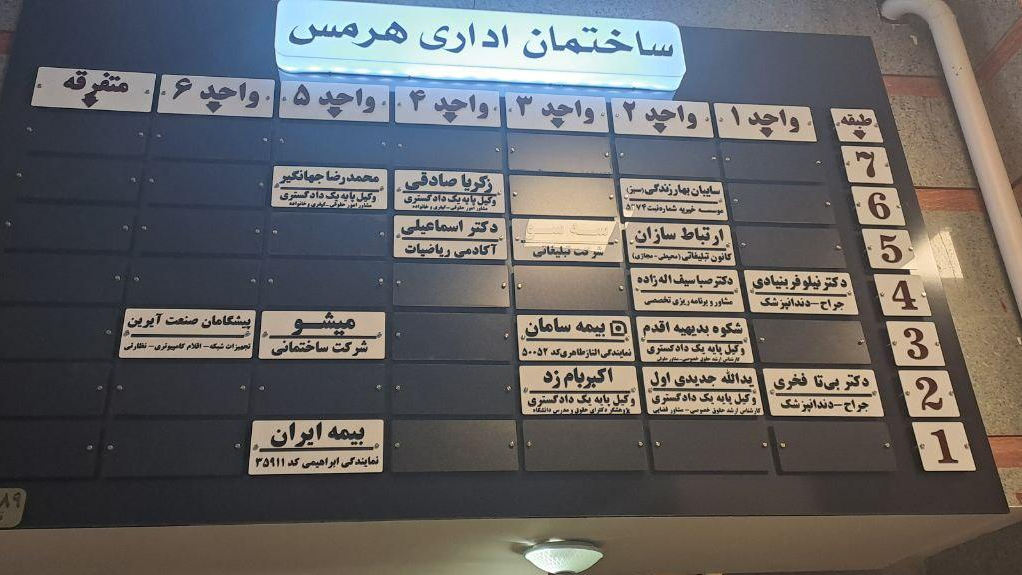 ساختمان اداری هرمس
طبقه
واحد ۱
واحد ۲
واحد ۳
واحد ۴
واحد ۵
واحد ۶
متفرقه
7
6
سایبان بهار زندگی (سبز)
موسسه خیریه شماره ثبت
زکریا صادقی
وکیل پایه یک دادگستری
مشاور امور حقوقی-کیفری و خانواده
محمدرضا جهانگیر
وکیل پایه یک دادگستری
مشاور امور حقوقی-کیفری و خانواده
5
ارتباط سازان
کانون تبلیغاتی (محیطی - مجازی)
شرکت تبلیغاتی
دکتر اسماعیلی
آکادمی ریاضیات
4
دکتر نیلوفر بنیادی
جراح-دندانپزشک
دکتر صبا سیف اله زاده
مشاور و برنامه ریزی تخصصی
3
شکوه بدیهیه اقدم
وکیل پایه یک دادگستری
کارشناس ارشد حقوق خصوصی-مشاور حقوقی
بیمه سامان
نمایندگی الناز طاهری کد ۵۰۰۵۲
میشو
شرکت ساختمانی
پیشگامان صنعت آیرین
تجهیزات شبکه - اقلام کامپیوتری - نظارتی
2
دکتر بی تا فخری
جراح-دندانپزشک
یدالله جدیدی اول
وکیل پایه یک دادگستری
کارشناس ارشد حقوق خصوصی-مشاور قضایی
اکبر بام زد
وکیل پایه یک دادگستری
پژوهشگر دکترای حقوق و مدرس دانشگاه
1
بیمه ایران
نمایندگی ابراهیمی کد ۳۵۹۱۱
۸۹